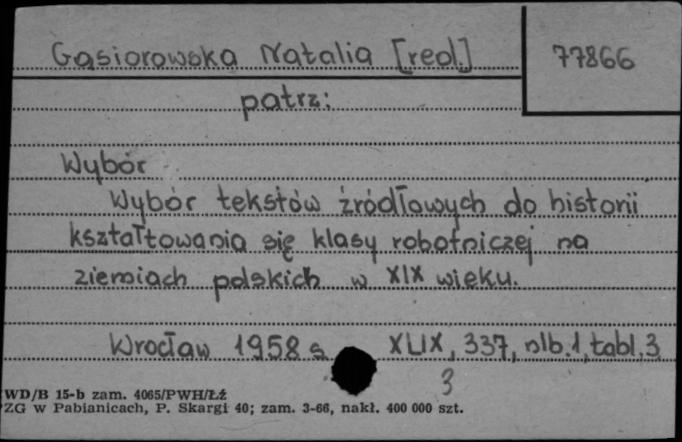 Gąsiorowska Natalia [red.]
77866
patrz:
Wybór
Wybór tekstów źródłowych do historii
kształtowania się klasy robotniczej na
ziemiach polskich w XIX wieku.
Wrocław 1958 s. XLIX, 337, nlb. 1, tabl. 3
3
WD/B 15-b zam. 4065/PWH/Łż
ZG w Pabianicach, P. Skargi 40; zam. 3-66, nakł. 400 000 szt.